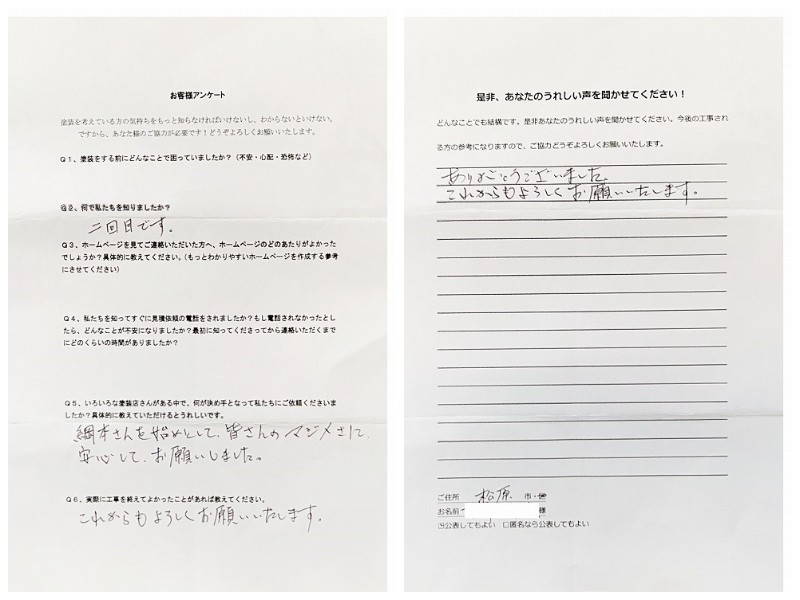 お客様アンケート
塗装を考えている方の気持ちをもっと知らなければいけないし、わからないといけない。
ですから、あなた様のご協力が必要です！どうぞよろしくお願いいたします。
Q1、塗装をする前にどんなことで困っていましたか？（不安・心配・恐怖など）
Q2、何で私たちを知りましたか？
二回目です。
Q3、ホームページを見てご連絡いただいた方へ、ホームページのどのあたりがよかった
でしょうか？具体的に教えてください。（もっとわかりやすいホームページを作成する参考
にさせてください）
Q4、私たちを知ってすぐに見積依頼の電話をされましたか？もし電話されなかったとし
たら、どんなことが不安になりましたか？最初に知ってくださってから連絡いただくまで
にどのくらいの時間がありましたか？
Q5、いろいろな塗装店さんがある中で、何が決め手となって私たちにご依頼くださいま
したか？具体的に教えていただけるとうれしいです。
綱本さんを始めとして、皆さんのマジメさに、
安心して、お願いしました。
Q6、実際に工事を終えてよかったことがあれば教えてください。
これからもよろしくお願いいたします。
是非、あなたのうれしい声を聞かせてください！
どんなことでも結構です。是非あなたのうれしい声を聞かせてください。今後の工事され
る方の参考になりますので、ご協力どうぞよろしくお願いいたします。
ありがとうございました。
これからもよろしくお願いいたします。
ご住所 松原 市・
お名前 様
公表してもよい □匿名なら公表してもよい